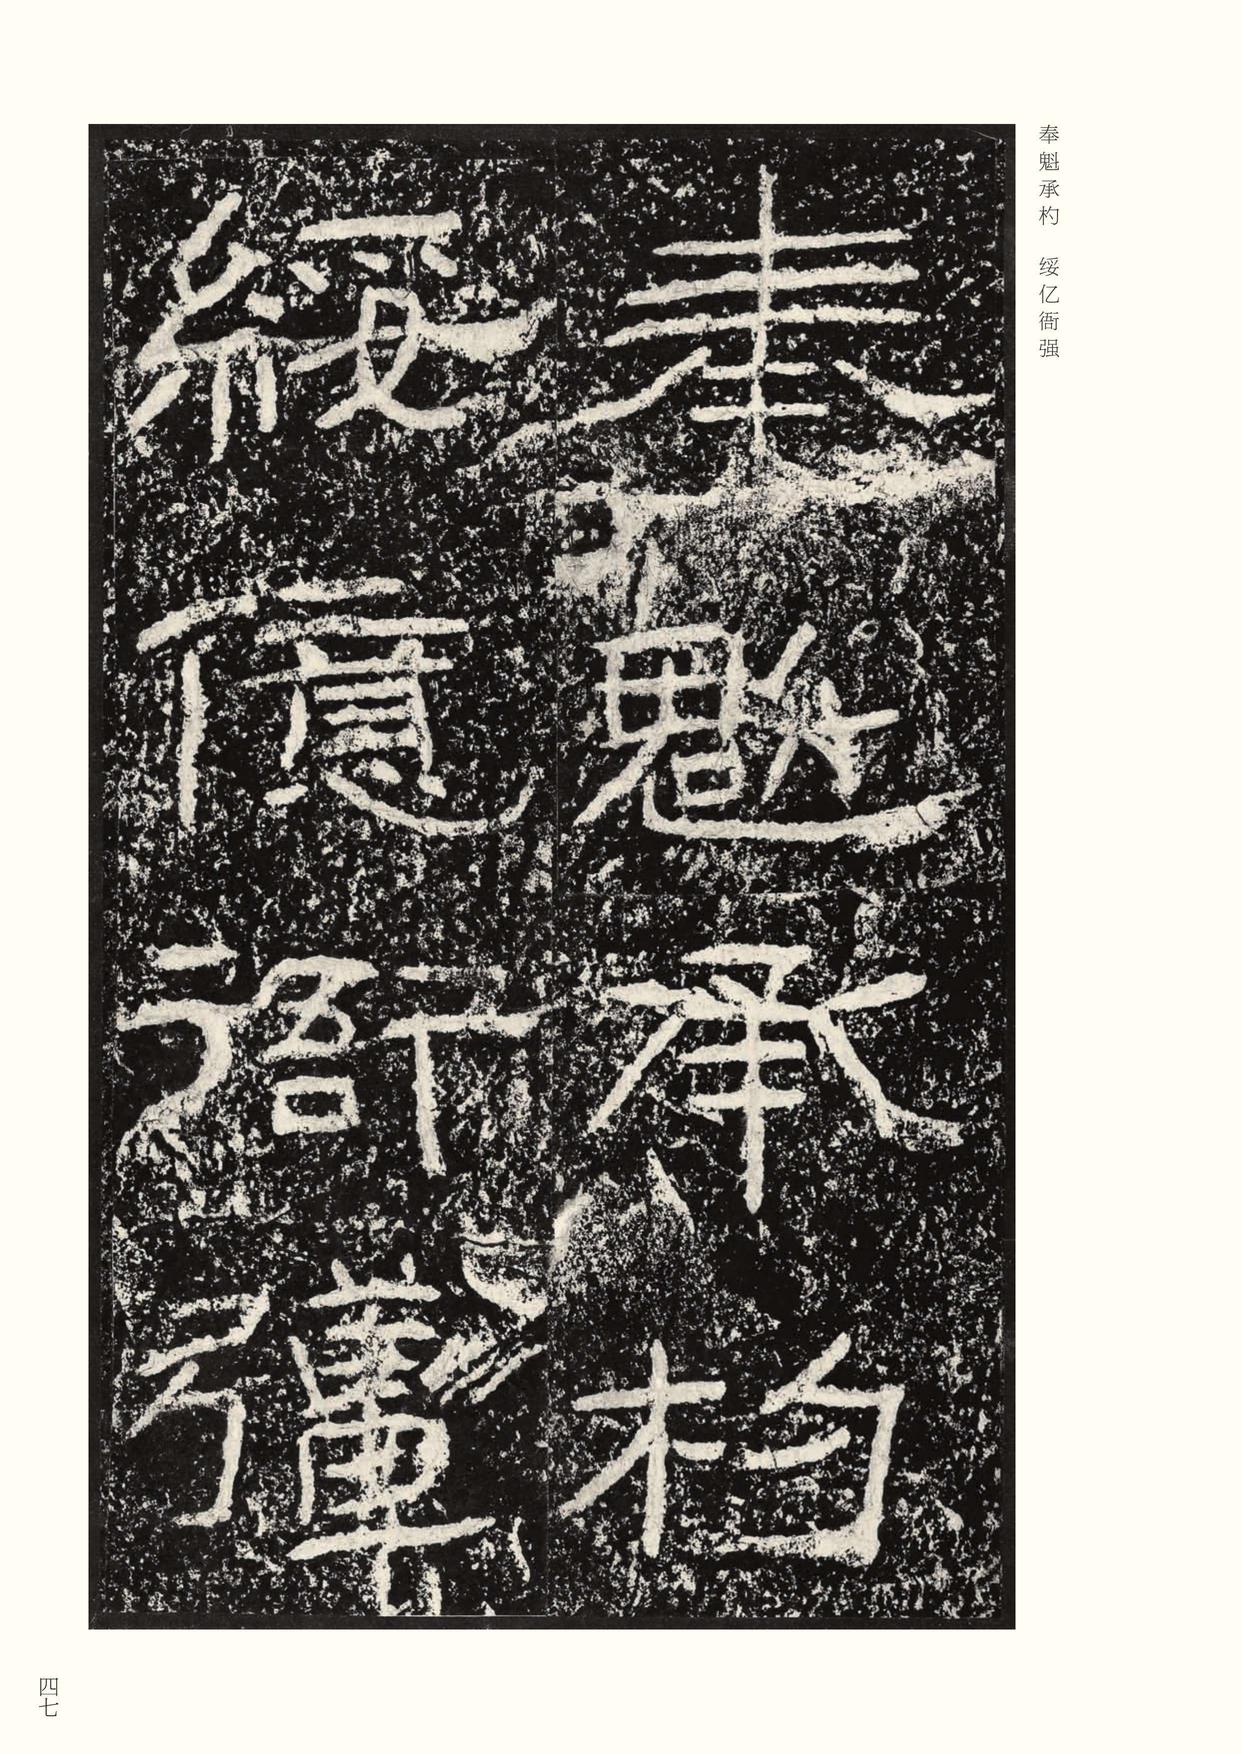 奉魁承杓　绥亿衙强
奉魁承杓
綏億衙彊
四七